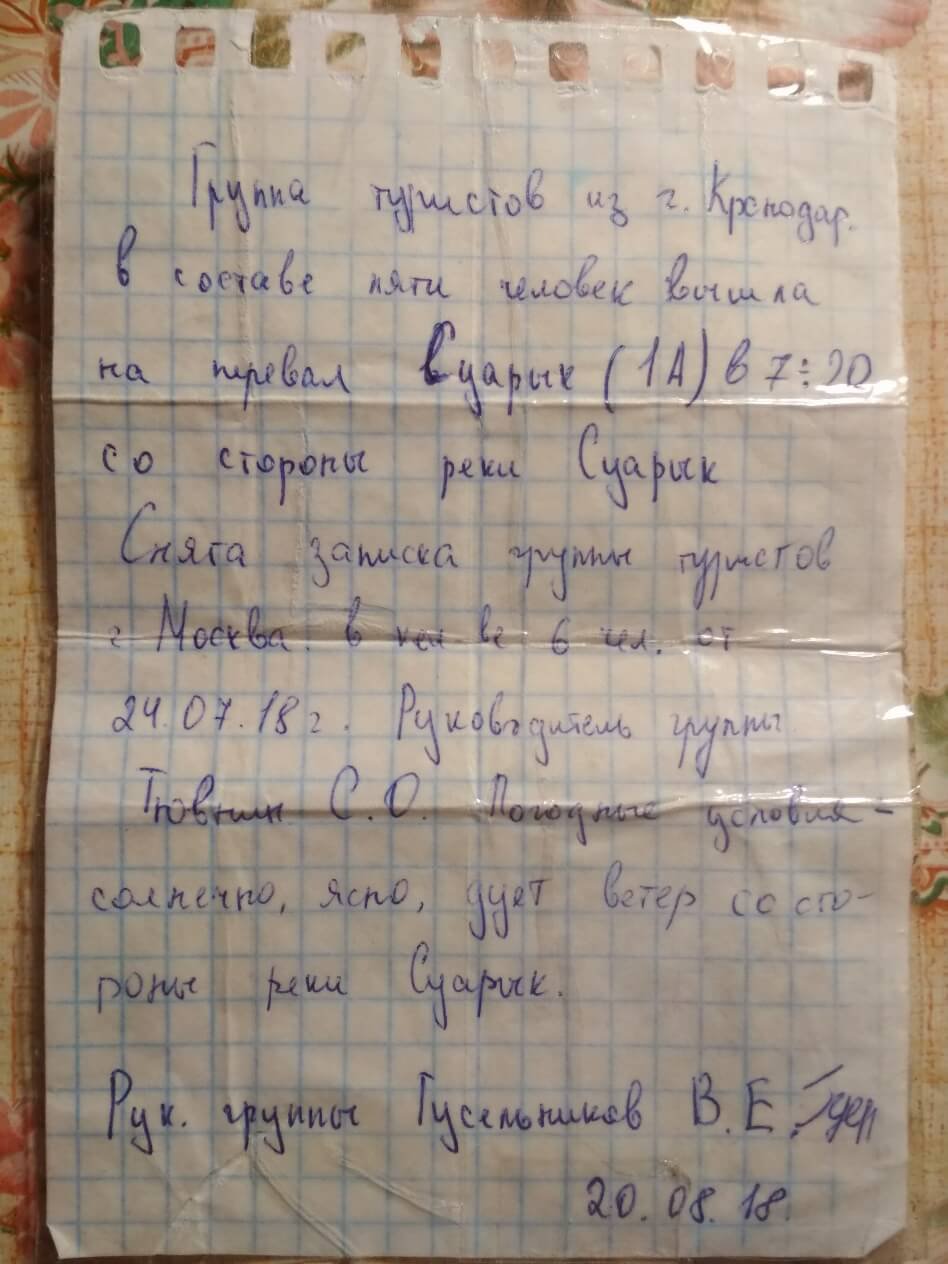 Группа туристов из г. Краснодар.
в составе пяти человек вышла
на перевал Суарык (1А) в 7:20
со стороны реки Суарык
Снята записка группы туристов
г Москва. в кол ве 6 чел. от
24.07.18 г. Руководитель группы
С.О. Погодные условия -
солнечно, ясно, дует ветер со сто-
роны реки Суарык.
Рук. группы Гусельников В.Е.
20.08.18.